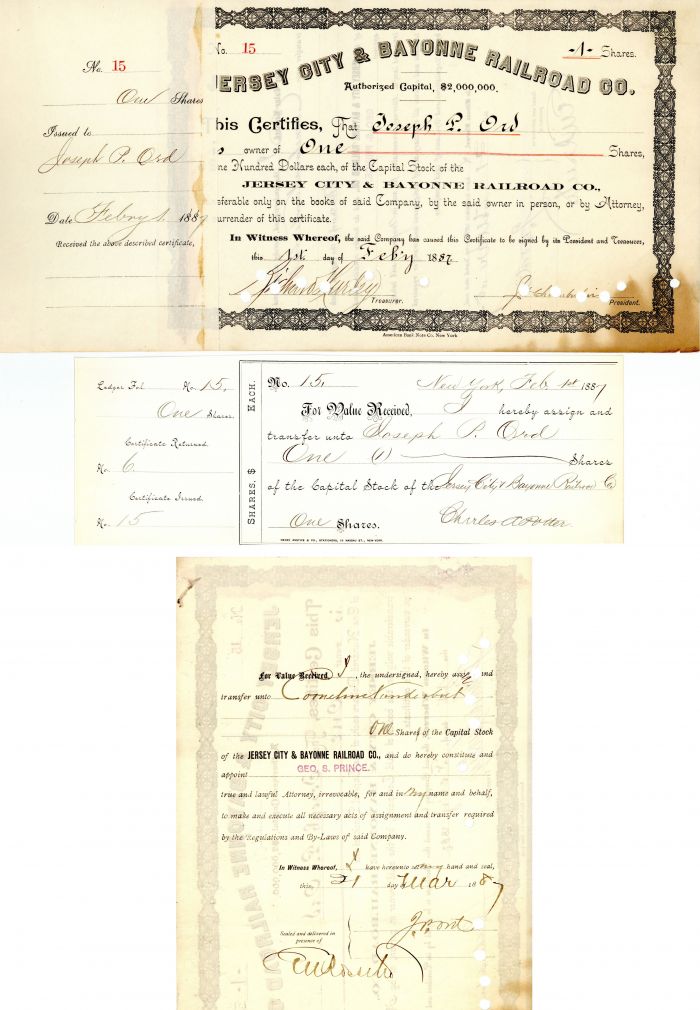 No. 15
One Shares
Issued to
Joseph P. Ord
Date Febry 1. 1887
Received the above described certificate,
No. 15 -1- Shares.
JERSEY CITY & BAYONNE RAILROAD CO.
Authorized Capital, $2,000,000.
his Certifies, That Joseph P. Ord
s owner of One Shares,
ne Hundred Dollars each, of the Capital Stock of the
JERSEY CITY & BAYONNE RAILROAD CO.,
sferable only on the books of said Company, by the said owner in person, or by Attorney,
urrender of this certificate.
In Witness Whereof, the said Company has caused this Certificate to be signed by its President and Treasurer,
this 1st day of Feb'y 1887
Treasurer.
President.
American Bank Note Co. New York
Ledger Fol. No. 15.
One Shares.
Certificate Returned.
No. 6
Certificate Issued.
No. 15
SHARES, $ EACH.
No. 15. New York, Feb. 1st 1887
For Value Received, I hereby assign and
transfer unto Joseph P. Ord
One (1) Shares
of the Capital Stock of the Jersey City & Bayonne Railroad Co
One Shares. Charles A Potter
HENRY ANSTICE & CO., STATIONERS, NASSAU ST., NEW-YORK.
For Value Received I, the undersigned, hereby assign and
transfer unto Cornelius Vanderbilt
One Shares of the Capital Stock
of the JERSEY CITY & BAYONNE RAILROAD CO., and do hereby constitute and
appoint GEO. S. PRINCE.
true and lawful Attorney, irrevocable, for and in my name and behalf,
to make and execute all necessary acts of assignment and transfer required
by the Regulations and By-Laws of said Company.
In Witness Whereof, I have hereunto set my hand and seal,
this 21 day of Mar 1887
J. P. Ord
Sealed and delivered in
presence of